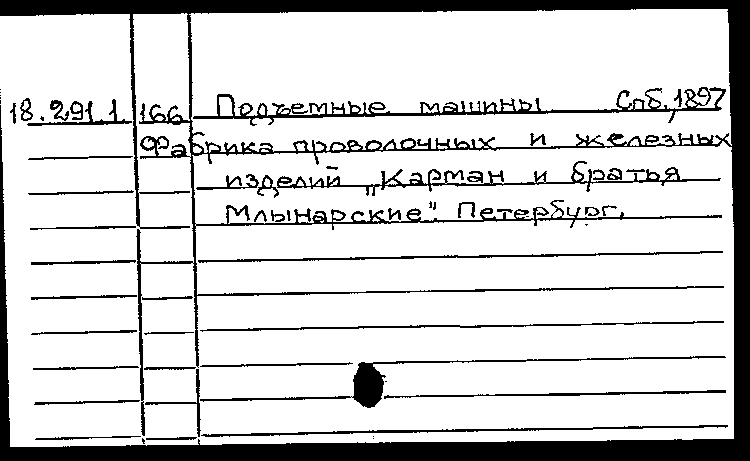 18.291.1 166 Подъемные машины Спб, 1897
Фабрика проволочных и железных
изделий „Карман и братья
Млынарские". Петербург.